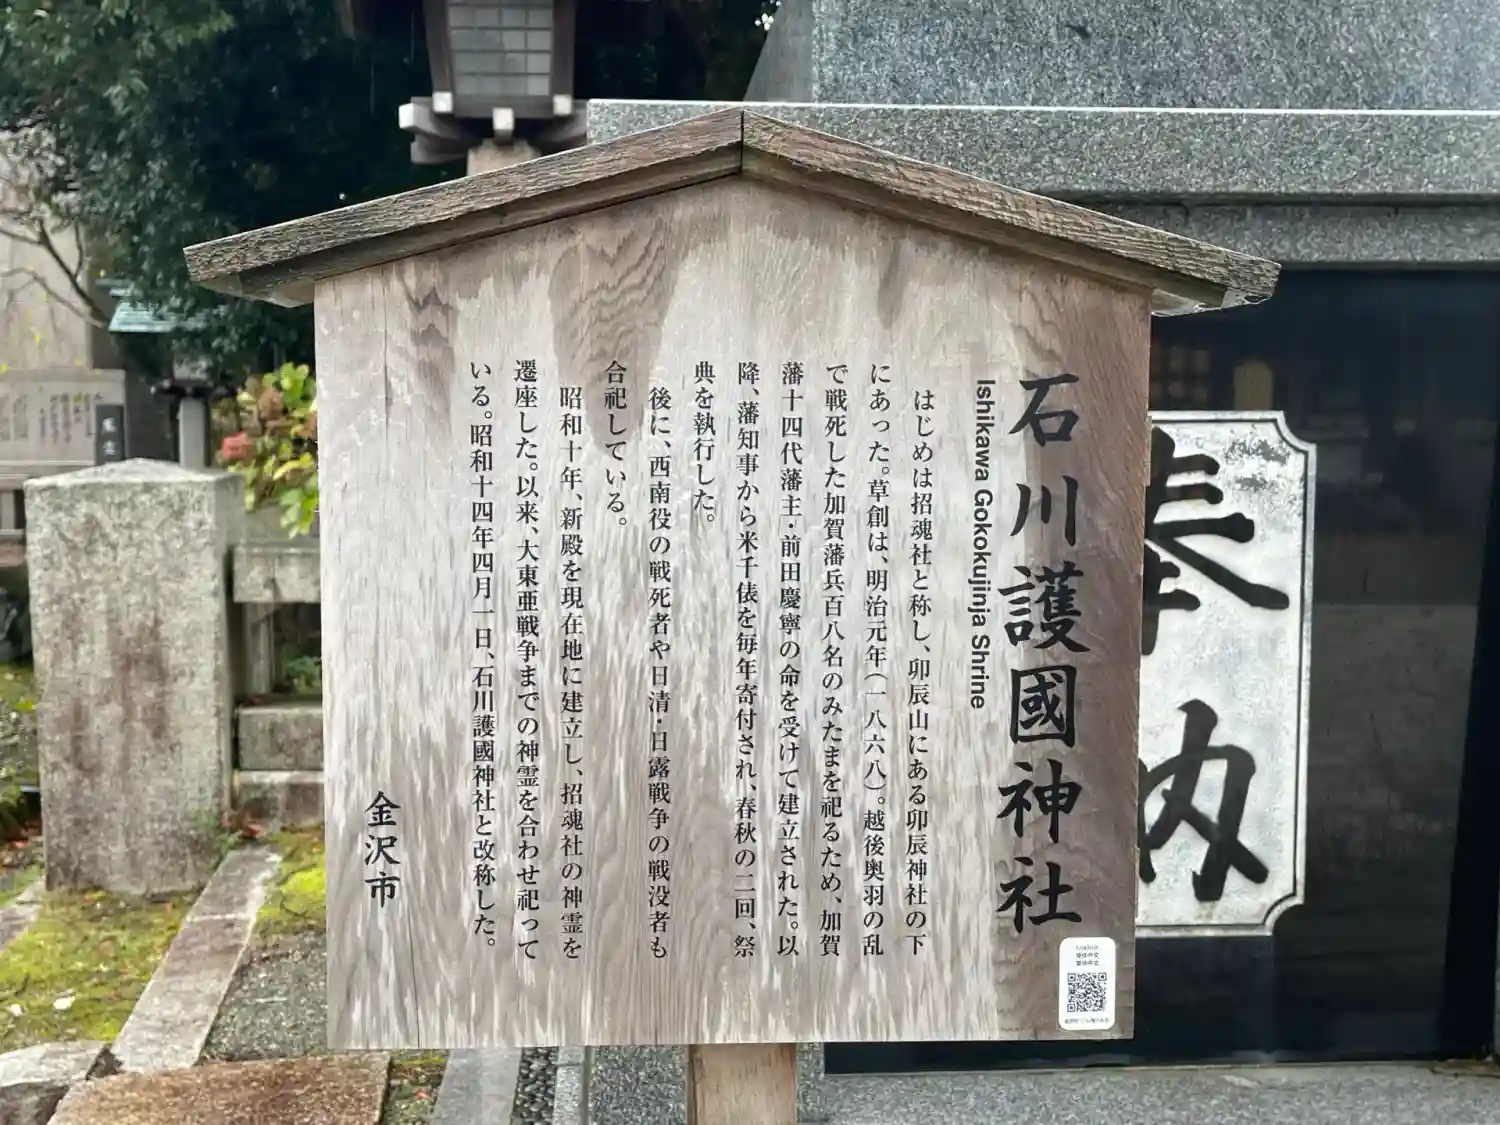 石川護國神社
Ishikawa Gokokujinja Shrine
はじめは招魂社と称し、卯辰山にある卯辰神社の下
にあった。草創は、明治元年(一八六八)。越後奥羽の乱
で戦死した加賀藩兵百八名のみたまを祀るため、加賀
藩十四代藩主・前田慶寧の命を受けて建立された。以
降、藩知事から米千俵を毎年寄付され、春秋の二回、祭
典を執行した。
後に、西南役の戦死者や日清・日露戦争の戦没者も
合祀している。
昭和十年、新殿を現在地に建立し、招魂社の神霊を
遷座した。以来、大東亜戦争までの神霊を合わせ祀って
いる。昭和十四年四月一日、石川護國神社と改称した。
金沢市
奉納